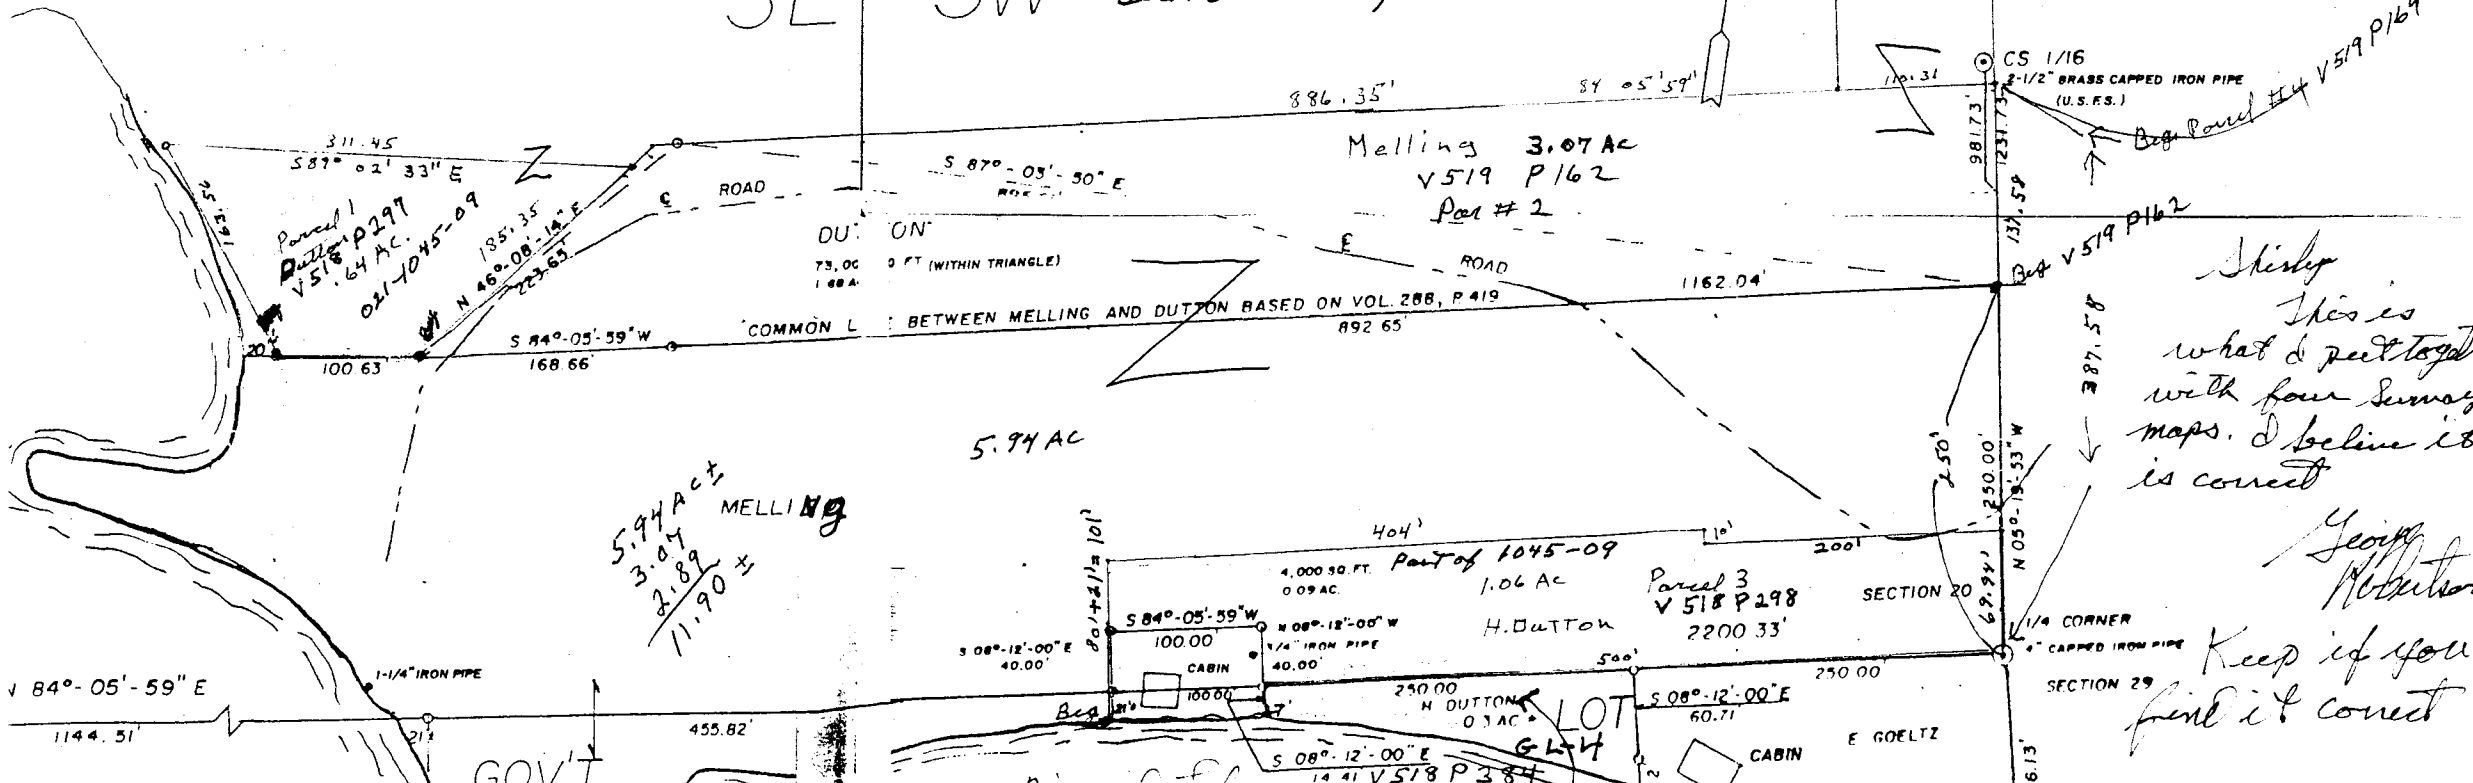 SE SW
CS 1/16
2-1/2" BRASS CAPPED IRON PIPE
(U.S.F.S.)
Beg Parcel #4 V 519 P164
981.73'
1231.73
886.35'
84 05'59"
110.31
311.45
S 89° 02' 33" E
163.54
Parcel 1
Dutton
V 518 P 297
.64 AC.
021-1045-09
185.35
N 46°-08'-14" E
223.65'
℄ ROAD
S 87°-03'-50" E
Melling 3.07 Ac
V 519 P 162
Par # 2
137.58
Beg V 519 P162
DU ON
73,00 0 FT (WITHIN TRIANGLE)
1.68 A
℄ ROAD
1162.04'
COMMON L BETWEEN MELLING AND DUTTON BASED ON VOL. 288, P. 419
892.65'
S 84°-05'-59" W
168.66'
100.63
20'
387.58
Shirley
This is
what I put toget
with four Survey
maps. I belive it
is correct
George
Robertson
Keep if you
find it correct
5.94 AC
5.94 Ac ±
3.07
2.89
11.90 ±
MELLINg
250'
250.00'
N 05°-19'-53" W
69.94'
80'+21'= 101'
404'
10'
200'
4,000 SQ. FT.
0.09 AC.
Part of 1045-09
1.06 Ac
Parcel 3
V 518 P 298
H. DUTTON
2200.33'
SECTION 20
1/4 CORNER
4" CAPPED IRON PIPE
SECTION 29
S 84°-05'-59" W
100.00'
N 08°-12'-00" W
3/4" IRON PIPE
40.00'
S 08°-12'-00" E
40.00'
CABIN
100.00'
500'
250.00
250.00'
1-1/4" IRON PIPE
84°-05'-59" E
1144.51'
21'
455.82'
Beg
21'
7'
H DUTTON
0.3 AC
LOT
GL-4
S 08°-12'-00" E
60.71'
CABIN
E GOELTZ
GOV'T
S 08°-12'-00" E
14.41'
V 518 P 384
6.13'